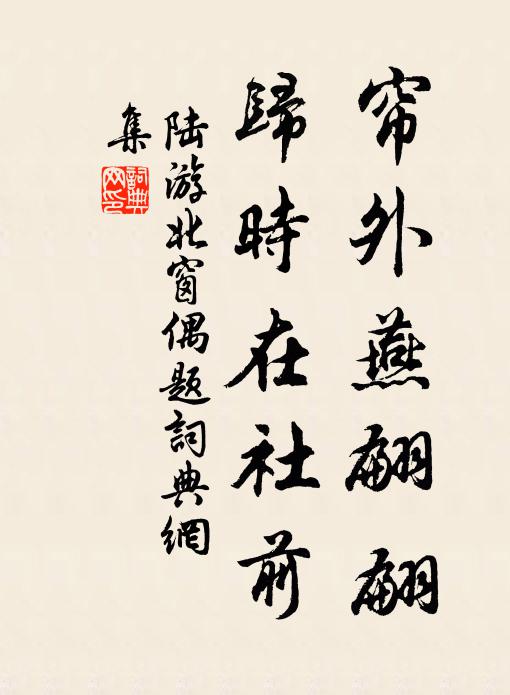 帘外燕翩翩
歸時在社前
陆游北窗偶题詞典網
集
詞典网印